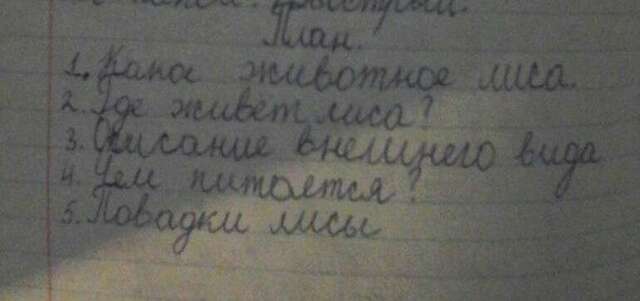 План.
1. Какое животное лиса.
2. Где живет лиса?
3. Описание внешнего вида
4. Чем питается?
5. Повадки лисы